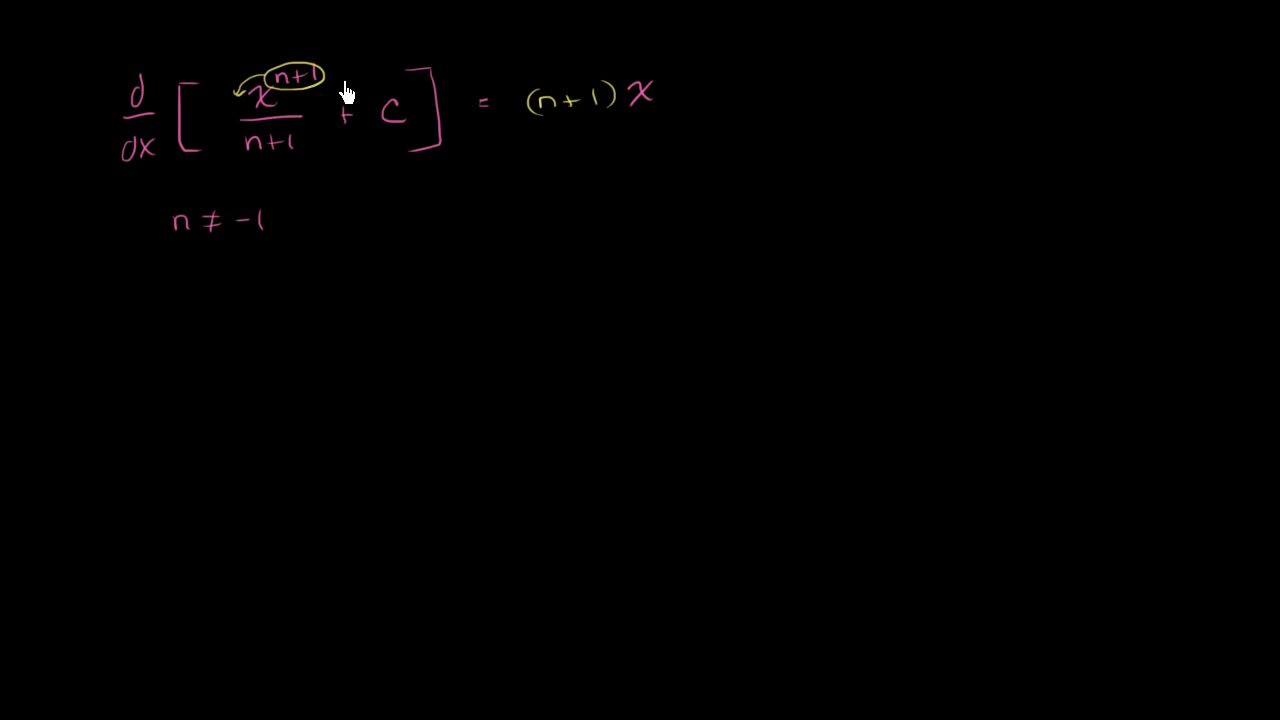 d/dx [ x^(n+1)/(n+1) + c ] = (n+1) x
n ≠ -1